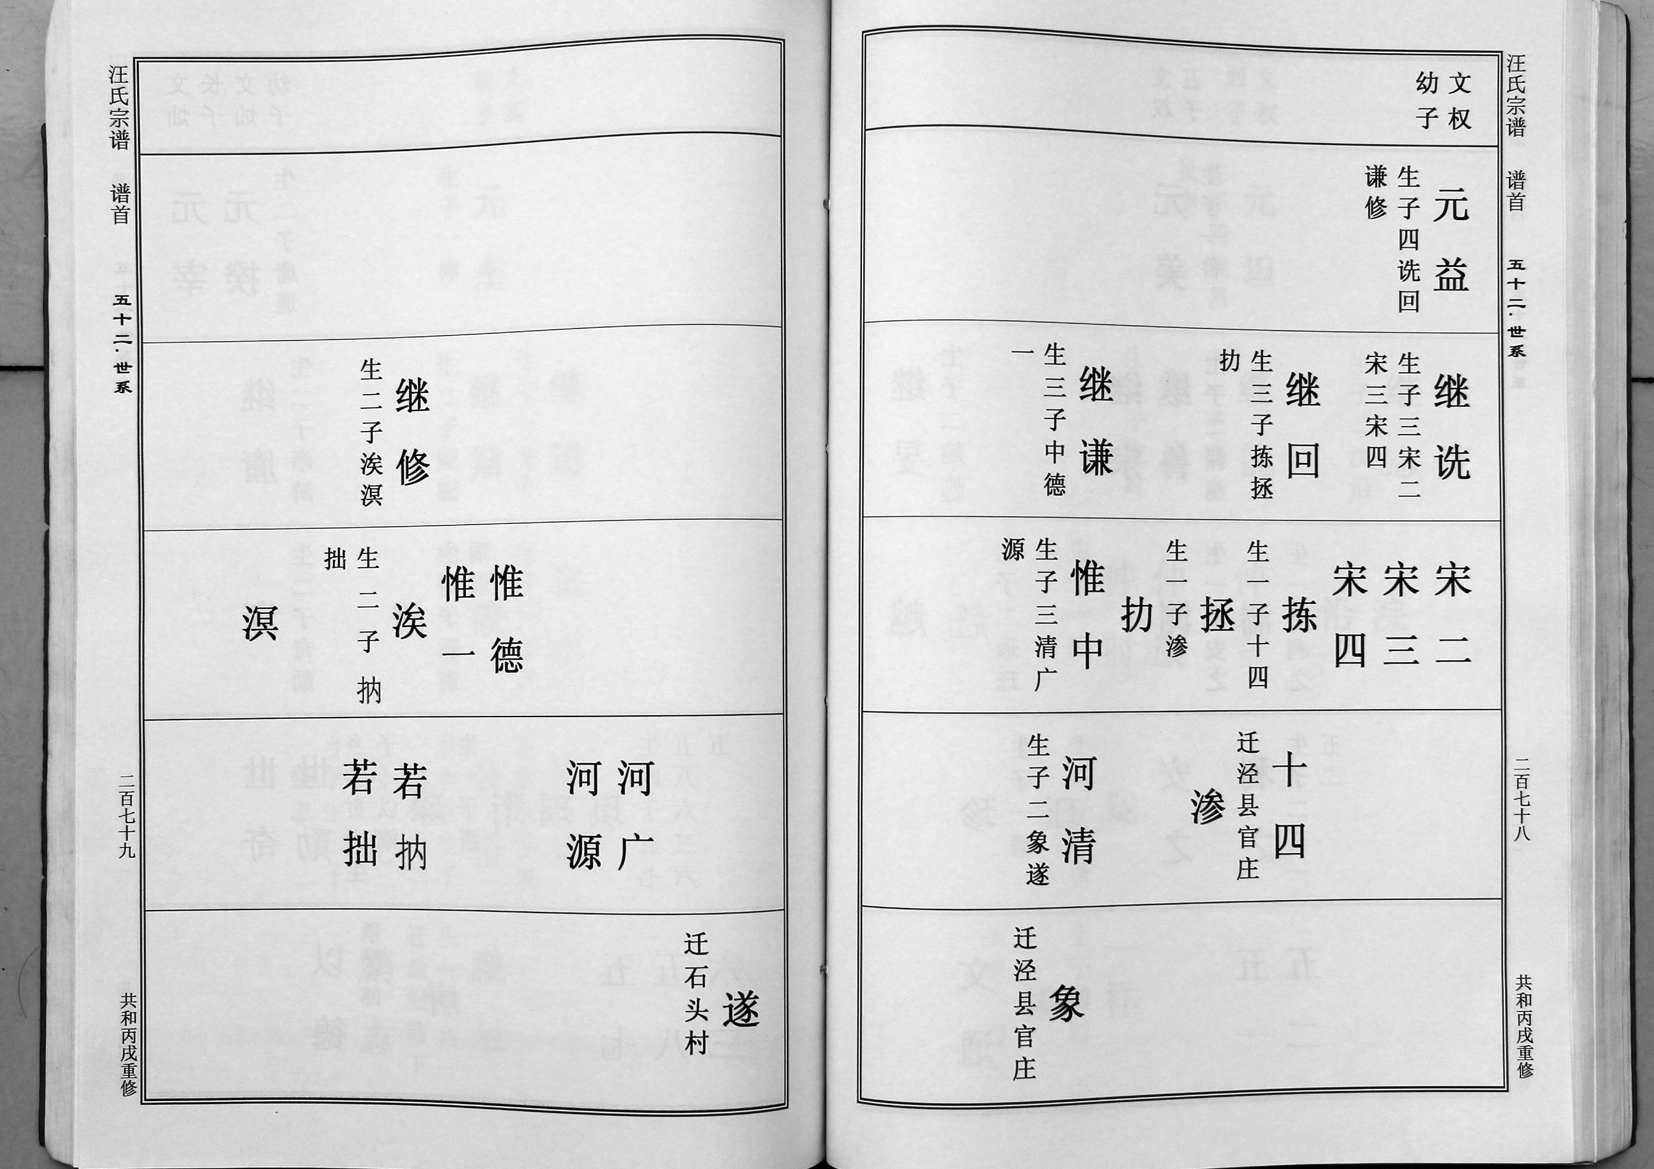 汪氏宗谱 谱首 五十二·世系 二百七十八 共和丙戌重修
文权
幼子
元益
生子四诜回
谦修
继诜
生子三宋二
宋三宋四
继回
生三子拣拯
扐
继谦
生三子中德
一
宋二
宋三
宋四
拣
生一子十四
拯
生一子渗
扐
惟中
生子三清广
源
十四
迁泾县官庄
渗
河清
生子二象遂
象
迁泾县官庄
继修
生二子涘溟
惟德
惟一
涘
生二子抐
拙
溟
河广
河源
若抐
若拙
遂
迁石头村
汪氏宗谱 谱首 五十二·世系 二百七十九 共和丙戌重修